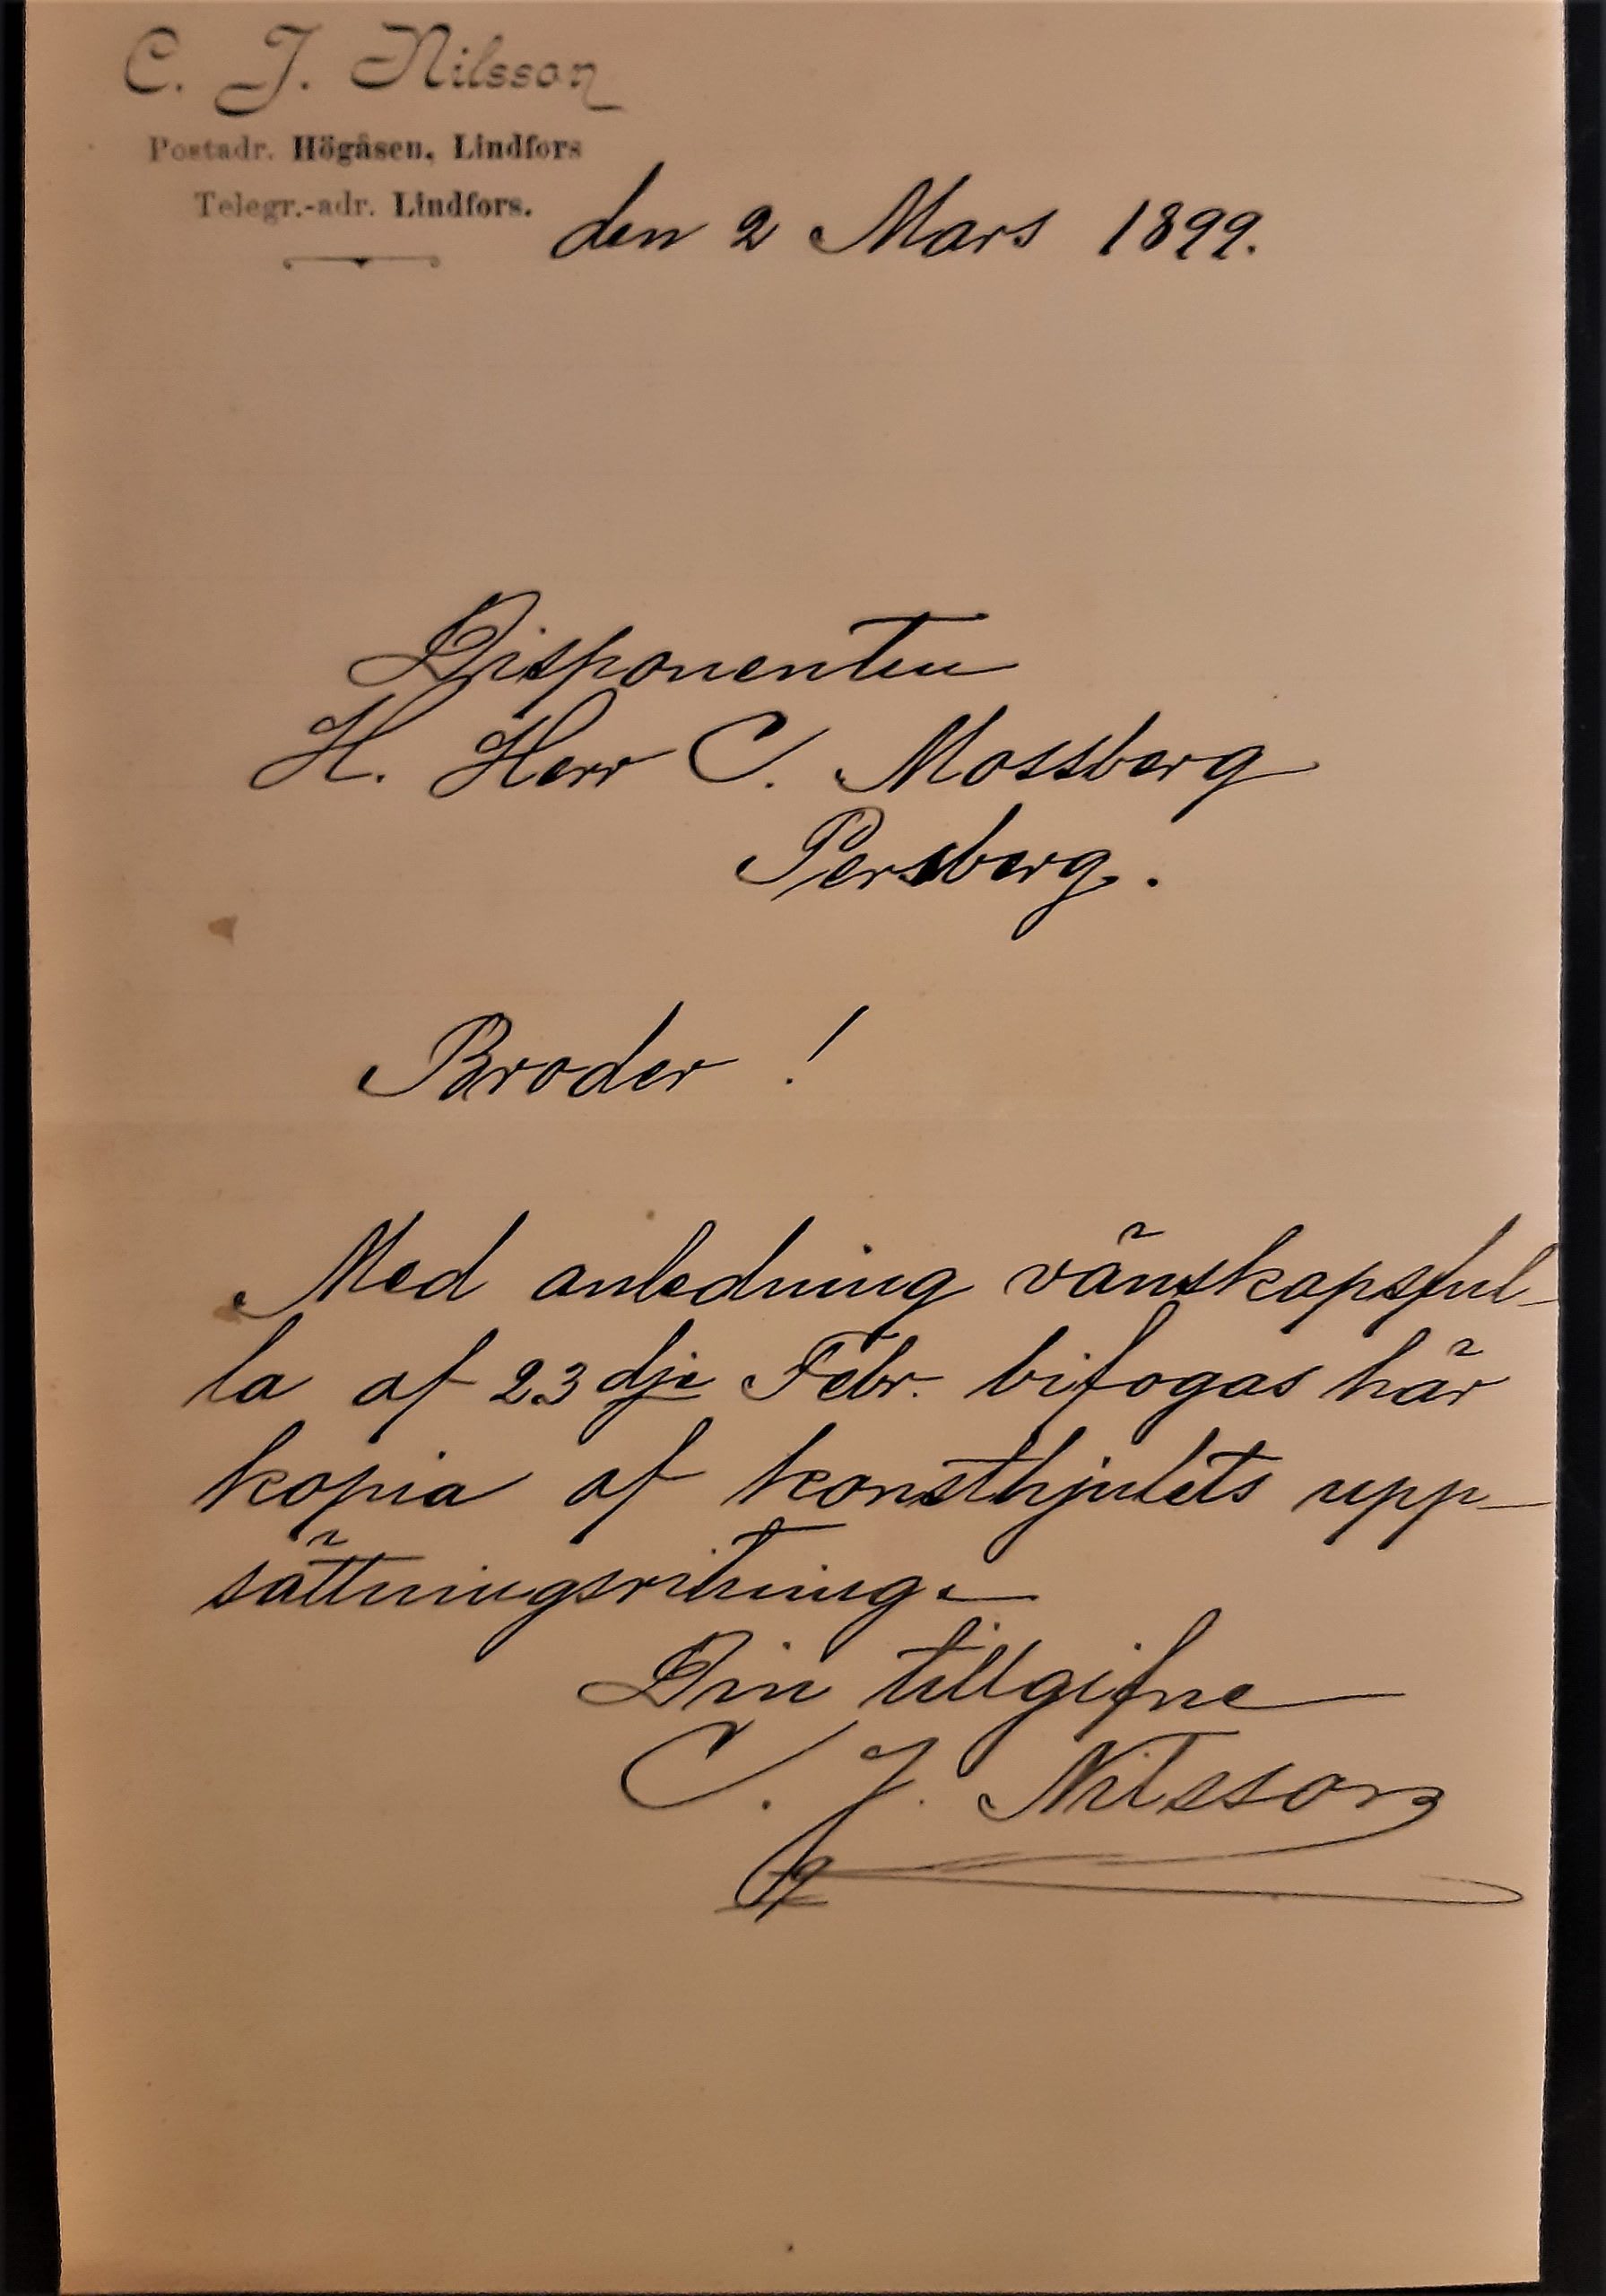 C. J. Nilsson
Postadr. Högåsen, Lindfors
Telegr.-adr. Lindfors.
den 2 Mars 1899.
Disponenten
H. Herr C. Mossberg
Persberg.
Broder!
Med anledning vänskapsful-
la af 23dje Febr. bifogas här
kopia af konsthjulets upp-
sättningsritning.
Din tillgifne
C. J. Nilsson